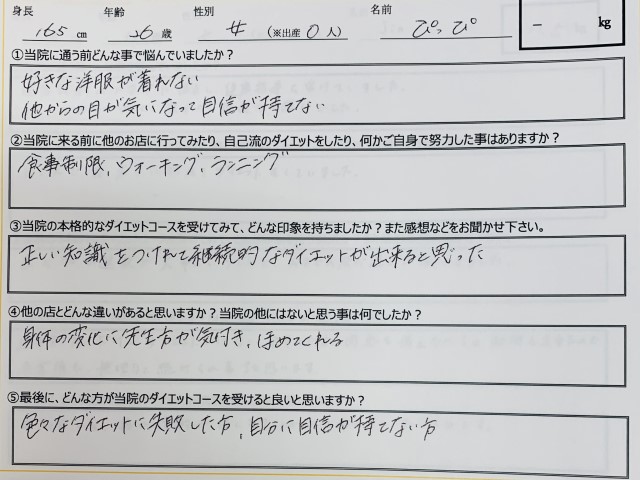 身長 年齢 性別 名前
165 cm 26 歳 女 (※出産 0 人) ぴっぴ − kg
①当院に通う前どんな事で悩んでいましたか？
好きな洋服が着れない
他からの目が気になって自信が持てない
②当院に来る前に他のお店に行ってみたり、自己流のダイエットをしたり、何かご自身で努力した事はありますか？
食事制限、ウォーキング、ランニング
③当院の本格的なダイエットコースを受けてみて、どんな印象を持ちましたか？また感想などをお聞かせ下さい。
正しい知識をつけれて継続的なダイエットが出来ると思った
④他の店とどんな違いがあると思いますか？当院の他にはないと思う事は何でしたか？
身体の変化に先生方が気付き、ほめてくれる
⑤最後に、どんな方が当院のダイエットコースを受けると良いと思いますか？
色々なダイエットに失敗した方、自分に自信が持てない方